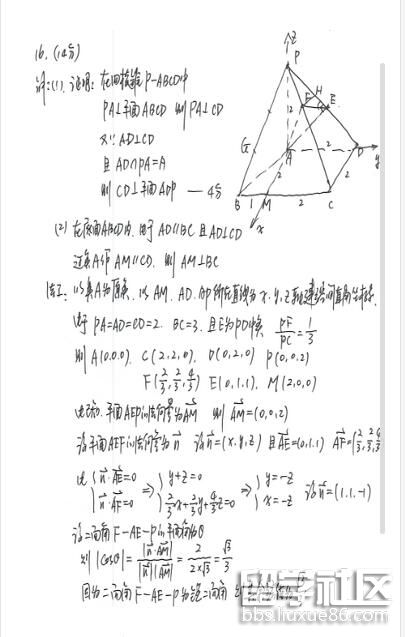 16. (14分)
解:(1) 证明: 在四棱锥P-ABCD中
PA⊥平面ABCD 则PA⊥CD
又∵AD⊥CD
且AD∩PA=A
则CD⊥平面ADP —— 4分
z
P
H
F
E
2
G
A
2
D
y
2
2
B
1
M
2
C
x
(2) 在底面ABCD内, 由于AD∥BC 且AD⊥CD
过点A作AM∥CD, 则AM⊥BC
法1: 以点A为原点, 以AM、AD、AP所在直线为x、y、z轴建立空间直角坐标系
由于PA=AD=CD=2, BC=3, 且E为PD中点 PF/PC=1/3
则A(0,0,0), C(2,2,0), D(0,2,0) P(0,0,2)
F(2/3,2/3,4/3) E(0,1,1), M(2,0,0)
平面AEP的法向量为AM 则AM=(0,0,2)
设平面AEF的法向量为n 设n=(x,y,z) 且AE=(0,1,1) AF=(2/3,2/3,4/3)
{n·AE=0 n·AF=0 ⇒ {y+z=0 2/3x+2/3y+4/3z=0 ⇒ {y=-z x=-z 设n=(1,1,-1)
设二面角F-AE-P的平面角为θ
则|cosθ|=|n·AM|/|n||AM|=2/2×√3=√3/3
因为二面角F-AE-P为锐二面角
留学社区
bbs.liuxue86.com